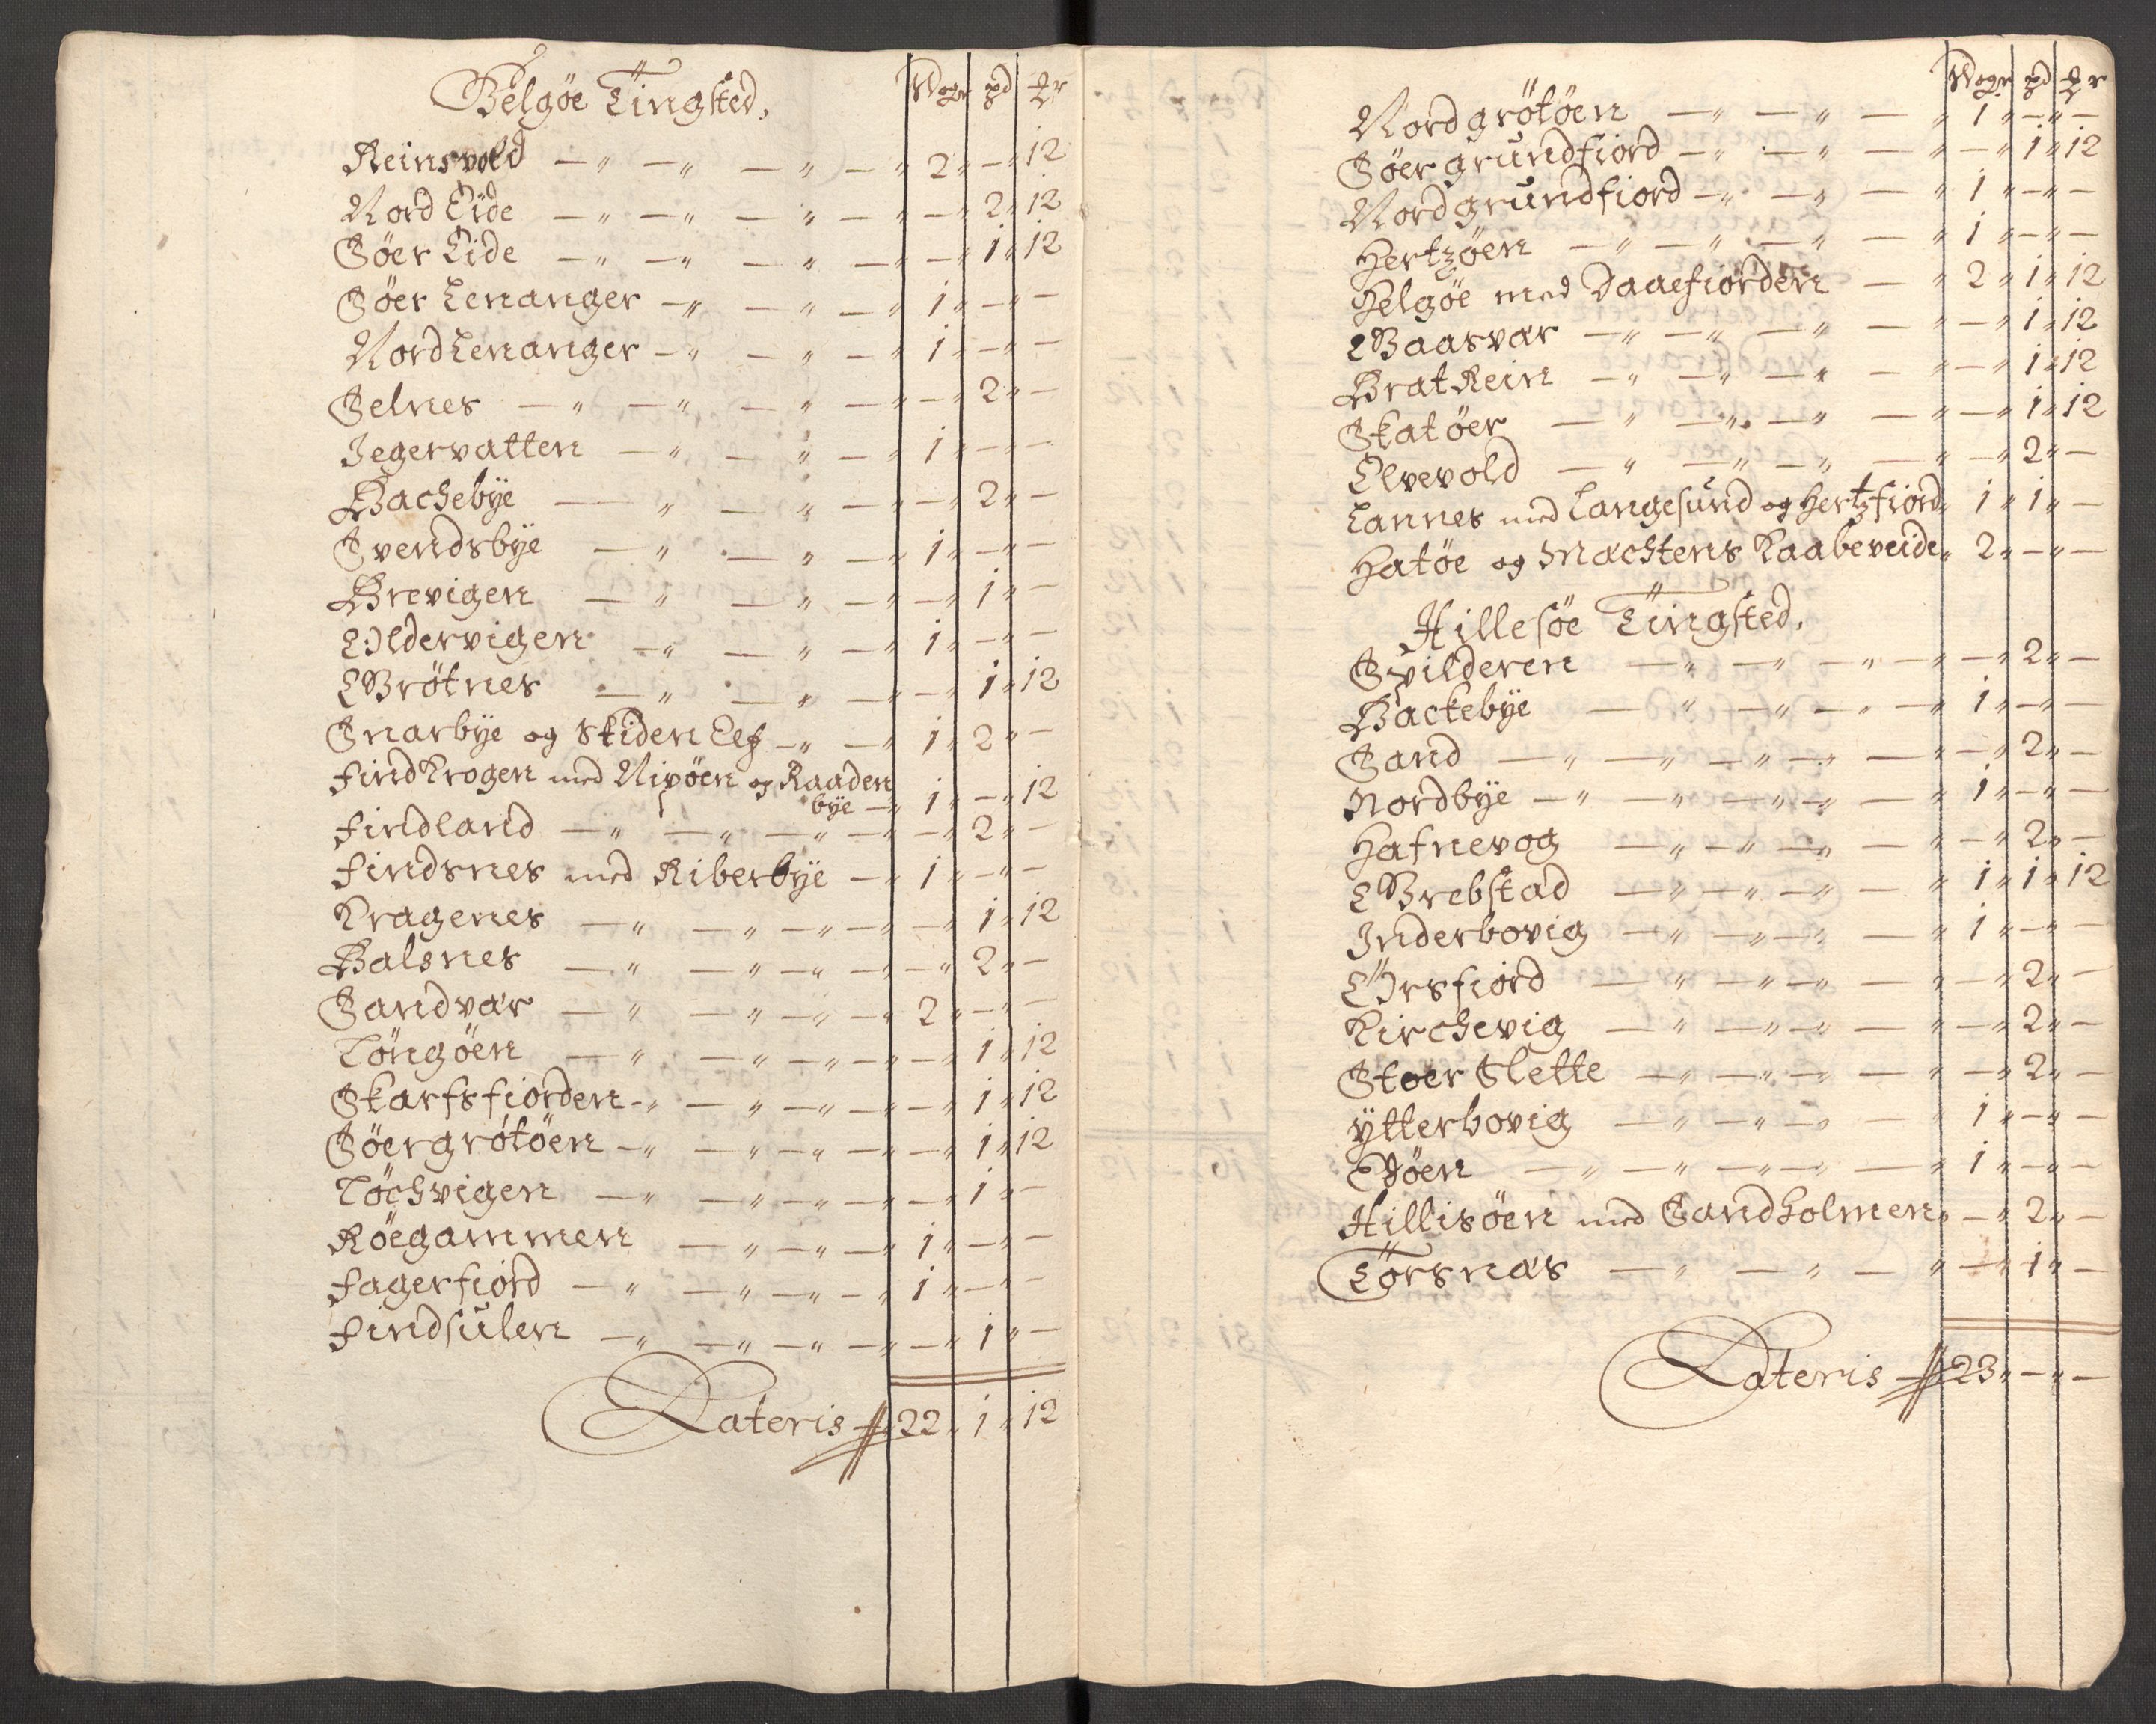 Helgöe Tingsted, Woger pd ℔r
Reinsvold — " — " — " — " 2 " — " 12
Nord Eide — " — " — " — " — " 2 " 12
Söer Eide — " — " — " — " — " 1 " 12
Söer Lenanger — " — " — " 1 " — " —
Nord Lenanger — " — " — " 1 " — " —
Selnes — " — " — " — " — " 2 " —
Jegervatten — " — " — " 1 " — " —
Bachebÿe — " — " — " — " 2 " —
Svendsbÿe — " — " — " 1 " — " —
Brevigen — " — " — " — " 1 " —
Oldervigen — " — " — " 1 " — " —
Grötnes — " — " — " — " 1 " 12
Snarbÿe og Skiden Elf — " — " 1 " 2 " —
Findkrogen med Nipöen og Raaden
bÿe — " 1 " — " 12
Findland — " — " — " — " — " 2 " —
Findsnes med Riberbÿe — " 1 " — " —
Kragenes — " — " — " — " — " 1 " 12
Balsnes — " — " — " — " — " 2 " —
Sandvær — " — " — " — " 2 " — " —
Töngöen — " — " — " — " — " 1 " 12
Skarfsfiorden — " — " — " — " — " 1 " 12
Söergrötöen — " — " — " — " — " 1 " 12
Töchvigen — " — " — " — " — " 1 " —
Röegammen — " — " — " 1 " — " —
Fagerfiord — " — " — " — " 1 " — " —
Findsulen — " — " — " — " — " 1 " —
Lateris 22 " 1 " 12
Woger pd ℔r
Nord grötöen — " — " — " 1 " — " —
Söer grundfiord — " — " — " — " 1 " 12
Nord grundfiord — " — " — " 1 " — " —
Hertzöen — " — " — " — " 1 " — " —
Helgöe med Daaefiorden — " 2 " 1 " 12
Gaasvær — " — " — " — " — " 1 " 12
Brat Rein — " — " — " — " — " 1 " 12
Skatöer — " — " — " — " — " 1 " 12
Elvevold — " — " — " — " — " 2 " —
Lannes med Langesund og Hertzfiord " 1 " 1 " —
Hatöe og Mæchtens Kaabeveide " 2 " — " —
Hillesöe Tingsted,
Spilderen — " — " — " — " — " 2 " —
Backebÿe — " — " — " — " 1 " — " —
Sand — " — " — " — " — " — " 2 " —
Nordbÿe — " — " — " — " — " 1 " — " —
Hafnevog — " — " — " — " — " 2 " —
Grebstad — " — " — " — " 1 " 1 " 12
Inderbovig — " — " — " — " 1 " — " —
Örsfiord — " — " — " — " — " 2 " —
Kirchevig — " — " — " — " — " 2 " —
Stoer Slette — " — " — " — " — " 2 " —
Ÿtterbovig — " — " — " — " 1 " — " —
Edöen — " — " — " — " — " 1 " — " —
Hillisöen med Sandholmen " — " 2 " —
Törsnæs — " — " — " — " 1 " —
Lateris 23 " — " —